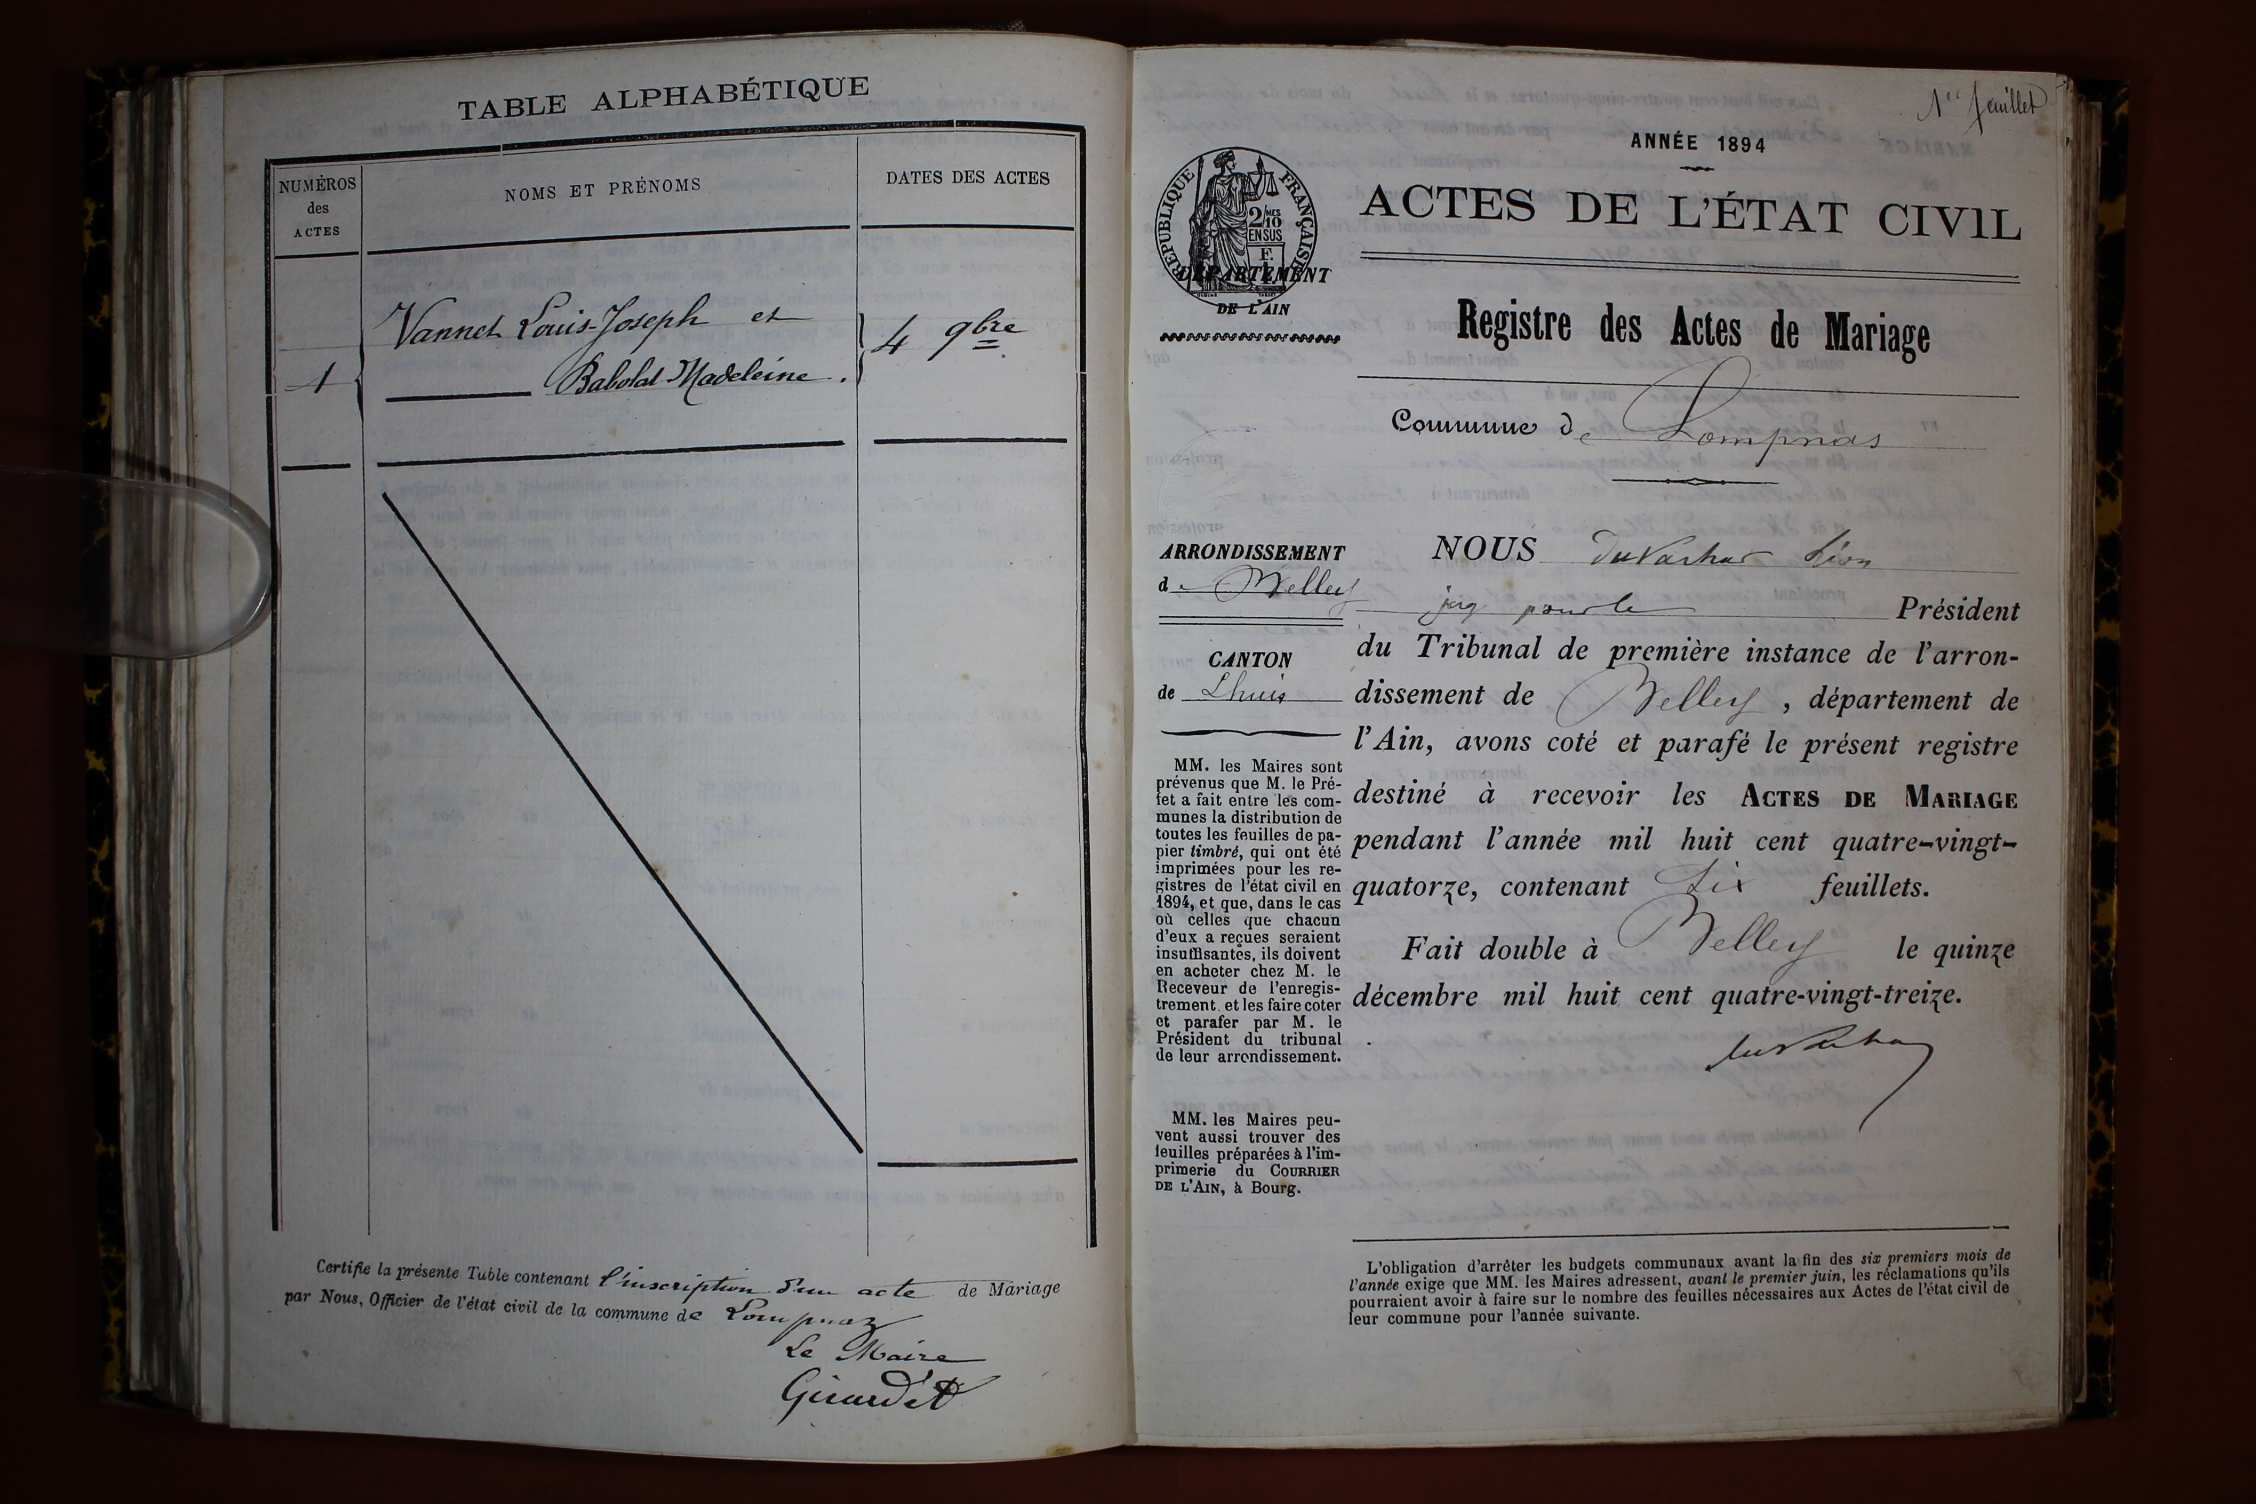 TABLE ALPHABÉTIQUE
NUMÉROS
des
ACTES
NOMS ET PRÉNOMS
DATES DES ACTES
1
Vannet Louis-Joseph et
Babolat Madeleine.
4 9bre
Certifie la présente Table contenant l'inscription d'un acte de Mariage
par Nous, Officier de l'état civil de la commune de Lompnaz
Le Maire
Girardet
1er feuillet
ANNÉE 1894
ACTES DE L'ÉTAT CIVIL
RÉPUBLIQUE FRANÇAISE
2/10
MES
EN SUS
DÉPARTEMENT
DE L'AIN
Registre des Actes de Mariage
Commune de Lompnas
ARRONDISSEMENT
de Belley
CANTON
de Lhuis
MM. les Maires sont
prévenus que M. le Pré-
fet a fait entre les com-
munes la distribution de
toutes les feuilles de pa-
pier timbré, qui ont été
imprimées pour les re-
gistres de l'état civil en
1894, et que, dans le cas
où celles que chacun
d'eux a reçues seraient
insuffisantes, ils doivent
en acheter chez M. le
Receveur de l'enregis-
trement, et les faire coter
et parafer par M. le
Président du tribunal
de leur arrondissement.
MM. les Maires peu-
vent aussi trouver des
feuilles préparées à l'im-
primerie du COURRIER
DE L'AIN, à Bourg.
NOUS
pour le Président
du Tribunal de première instance de l'arron-
dissement de Belley, département de
l'Ain, avons coté et parafé le présent registre
destiné à recevoir les ACTES DE MARIAGE
pendant l'année mil huit cent quatre-vingt-
quatorze, contenant Six feuillets.
Fait double à Belley le quinze
décembre mil huit cent quatre-vingt-treize.
L'obligation d'arrêter les budgets communaux avant la fin des six premiers mois de
l'année exige que MM. les Maires adressent, avant le premier juin, les réclamations qu'ils
pourraient avoir à faire sur le nombre des feuilles nécessaires aux Actes de l'état civil de
leur commune pour l'année suivante.